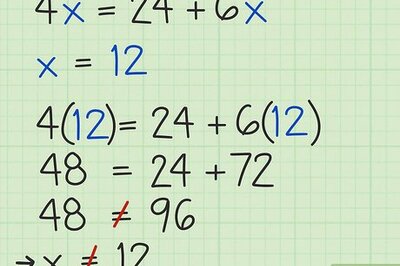 4x = 24 + 6x
x = 12
4(12)= 24 + 6(12)
48 = 24 + 72
48 ≠ 96
→ x ≠ 12